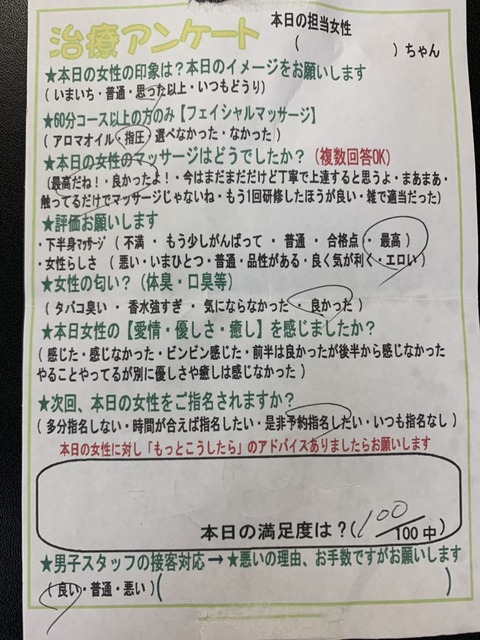 治療アンケート
本日の担当女性
( )ちゃん
★本日の女性の印象は？本日のイメージをお願いします
(いまいち・普通・思った以上・いつもどうり)
★60分コース以上の方のみ【フェイシャルマッサージ】
(アロマオイル・指圧・選べなかった・なかった)
★本日の女性のマッサージはどうでしたか？(複数回答OK)
(最高だね！・良かったよ！・今はまだまだだけど丁寧で上達すると思うよ・まあまあ・
触ってるだけでマッサージじゃないね・もう1回研修したほうが良い・雑で適当だった)
★評価お願いします
・下半身マッサージ (不満 ・ もう少しがんばって ・ 普通 ・ 合格点 ・ 最高 )
・女性らしさ (悪い・いまひとつ・普通・品性がある・良く気が利く・エロい)
★女性の匂い？(体臭・口臭等)
(タバコ臭い ・ 香水強すぎ ・ 気にならなかった ・ 良かった )
★本日女性の【愛情・優しさ・癒し】を感じましたか？
(感じた・感じなかった・ビンビン感じた・前半は良かったが後半から感じなかった
やることやってるが別に優しさや癒しは感じなかった )
★次回、本日の女性をご指名されますか？
(多分指名しない・時間が合えば指名したい・是非予約指名したい・いつも指名なし)
本日の女性に対し「もっとこうしたら」のアドバイスありましたらお願いします
本日の満足度は？(100/100中)
★男子スタッフの接客対応→★悪いの理由、お手数ですがお願いします
(良い・普通・悪い)( )